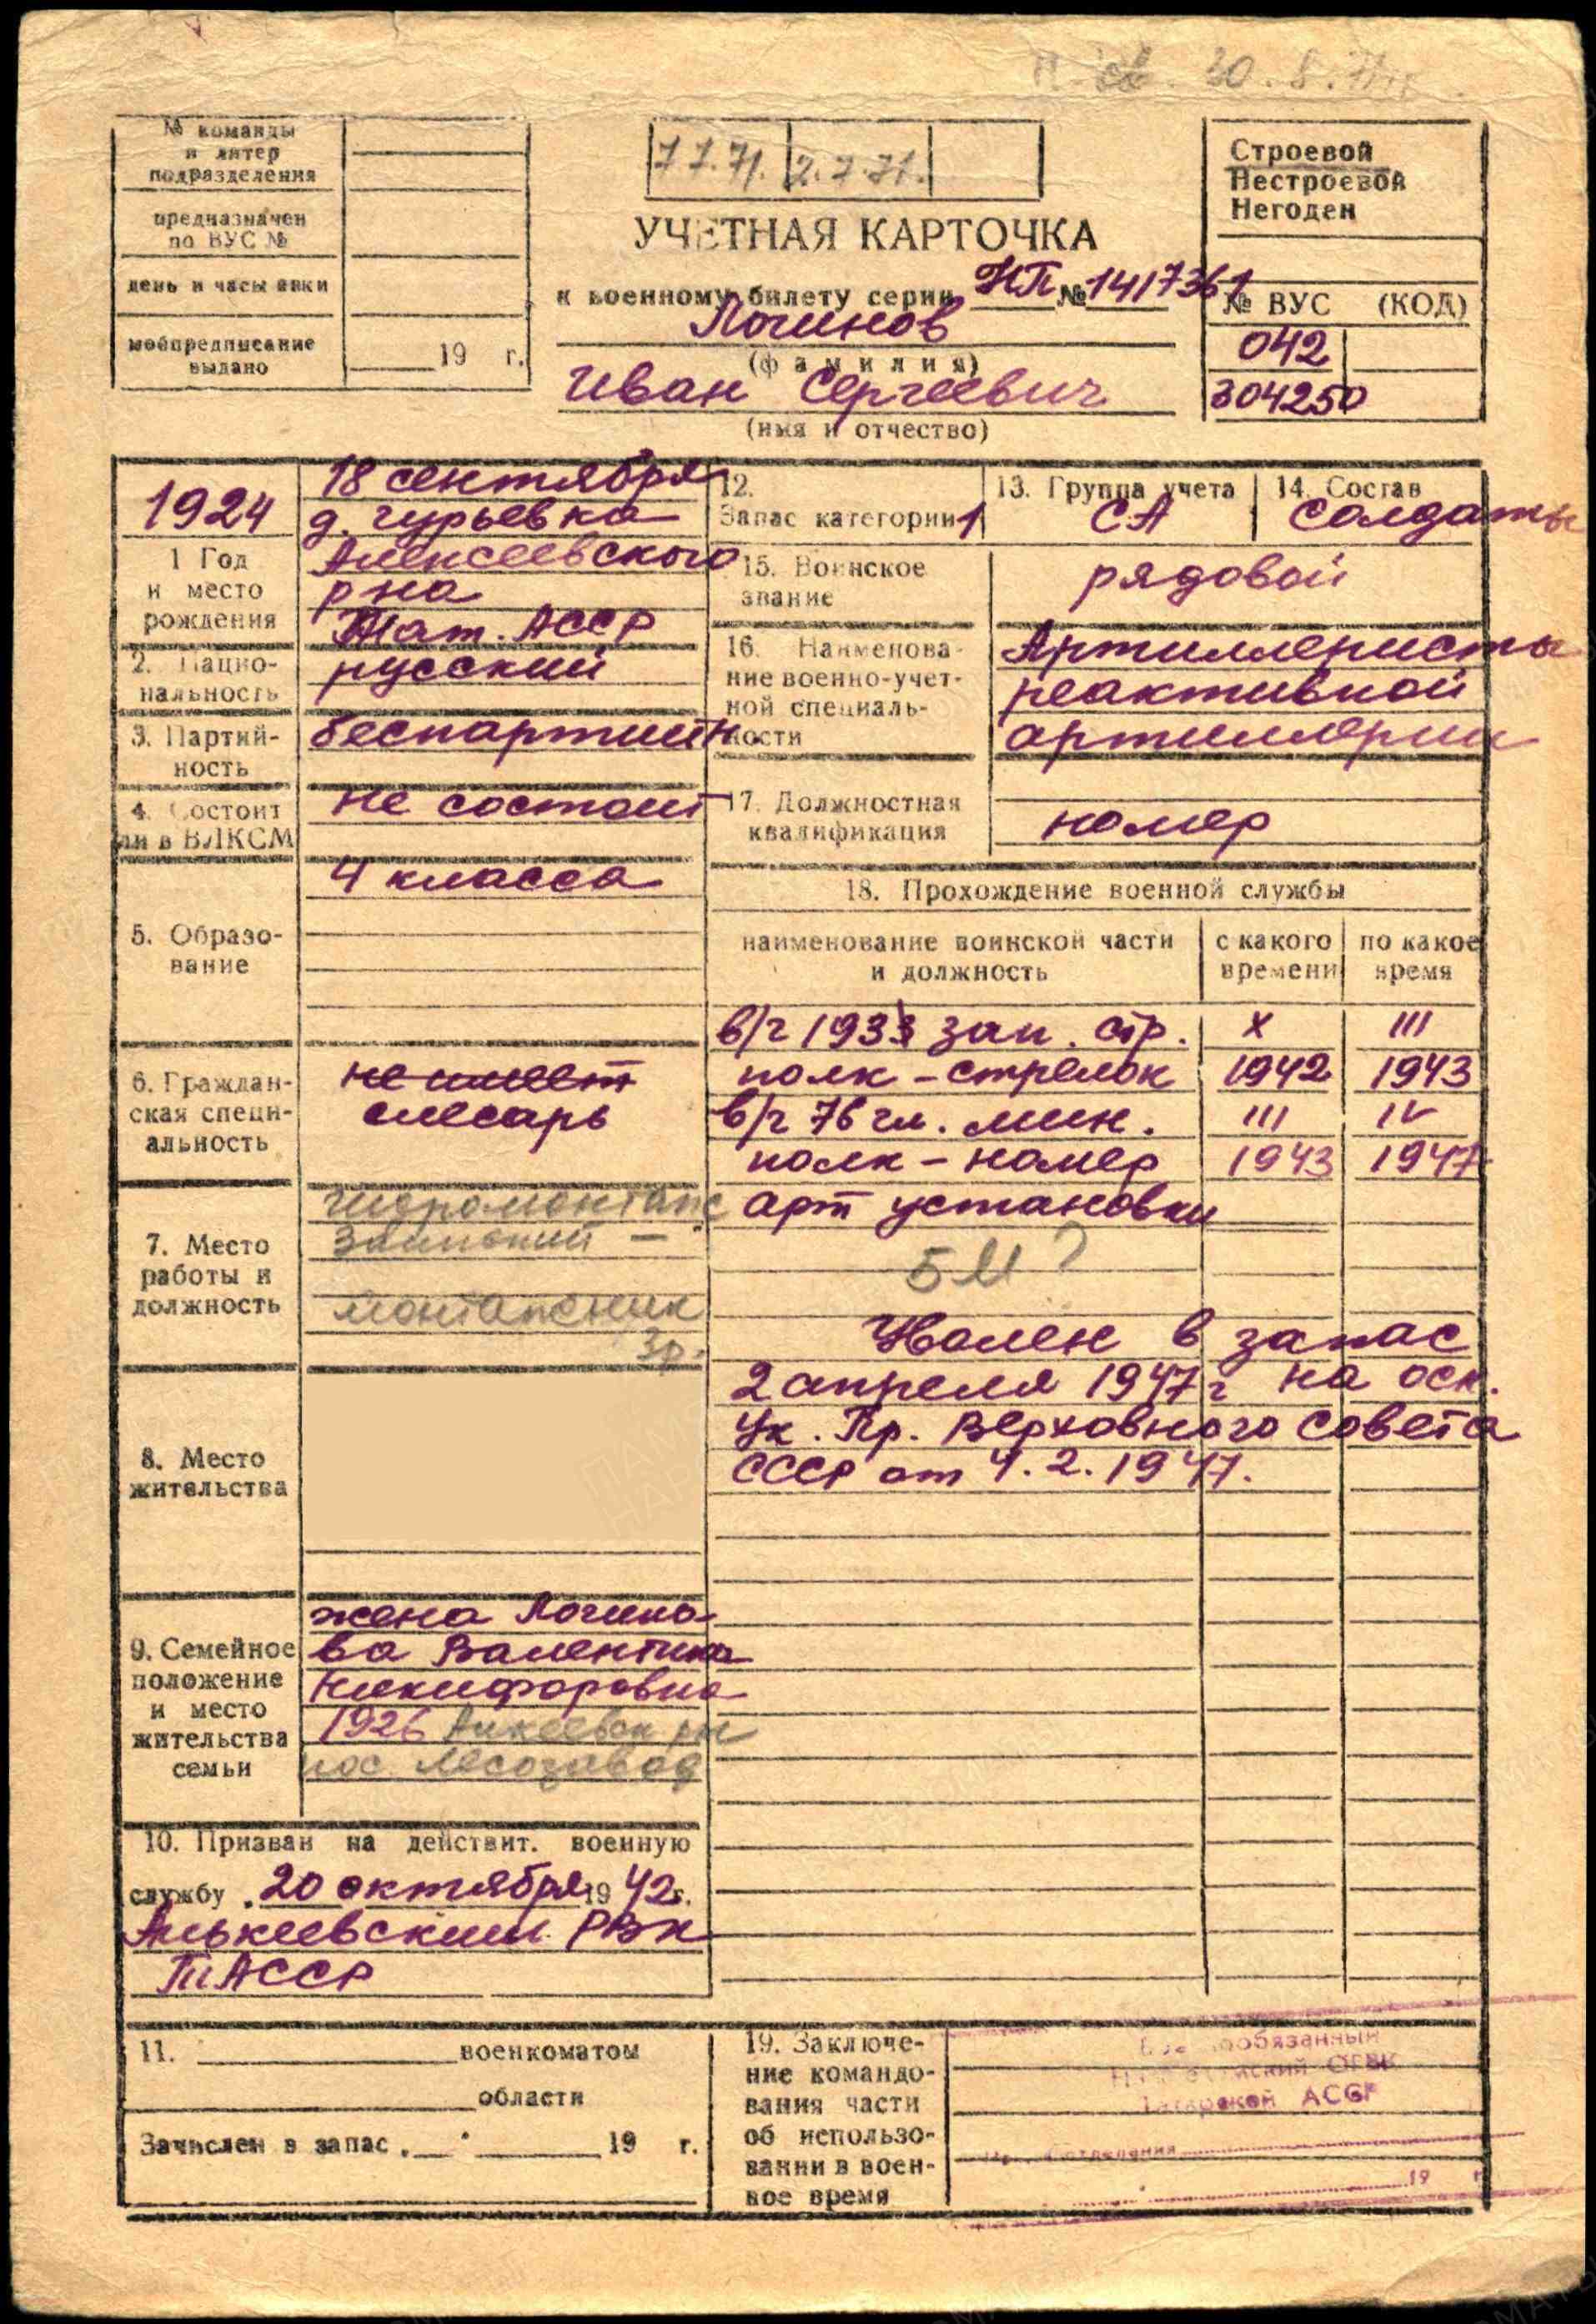 30.8.71
№ команды
и литер
подразделения
предназначен
по ВУС №
день и часы явки
мобпредписание
выдано
19 г.
7.7.71. 2.7.71.
УЧЕТНАЯ КАРТОЧКА
к военному билету серии НП № 1417361
Логинов
(фамилия)
Иван Сергеевич
(имя и отчество)
Строевой
Нестроевой
Негоден
№ ВУС (КОД)
042
304250
1924
1 Год
и место
рождения
18 сентября
д. гурьевка
Алексеевского
рна
Тат. АССР
2. Нацио-
нальность
русский
3. Партий-
ность
беспартийн.
4. Состоит
ли в ВЛКСМ
не состоит
5. Образо-
вание
4 класса
6. Граждан-
ская специ-
альность
не имеет
слесарь
7. Место
работы и
должность
гидромонтаж
Заинский —
монтажник
3р.
8. Место
жительства
9. Семейное
положение
и место
жительства
семьи
жена Логино-
ва Валентина
Никифоровна
1926 Алкеевск рн
пос. Лесозавод
10. Призван на действит. военную
службу 20 октября 1942г.
Алькеевским РВК
ТАССР
11. военкоматом
области
Зачислен в запас 19 г.
12.
Запас категории 1
13. Группа учета
СА
14. Состав
Солдаты
15. Воинское
звание
рядовой
16. Наименова-
ние военно-учет-
ной специаль-
ности
Артиллеристы
реактивной
артиллерии
17. Должностная
квалификация
номер
18. Прохождение военной службы
наименование воинской части
и должность
с какого
времени
по какое
время
в/ч 1933 зап. стр. X III
полк – стрелок 1942 1943
в/ч 76 гл. мин. III IV
полк – номер 1943 1947
арт установки
БМ?
Уволен в запас
2 апреля 1947г на осн.
Ук. Пр. Верховного Совета
СССР от 4.2.1947.
19. Заключе-
ние командо-
вания части
об использо-
вании в воен-
ное время
Военнообязанный
ОГВК
Татарской АССР
отделения
19 г